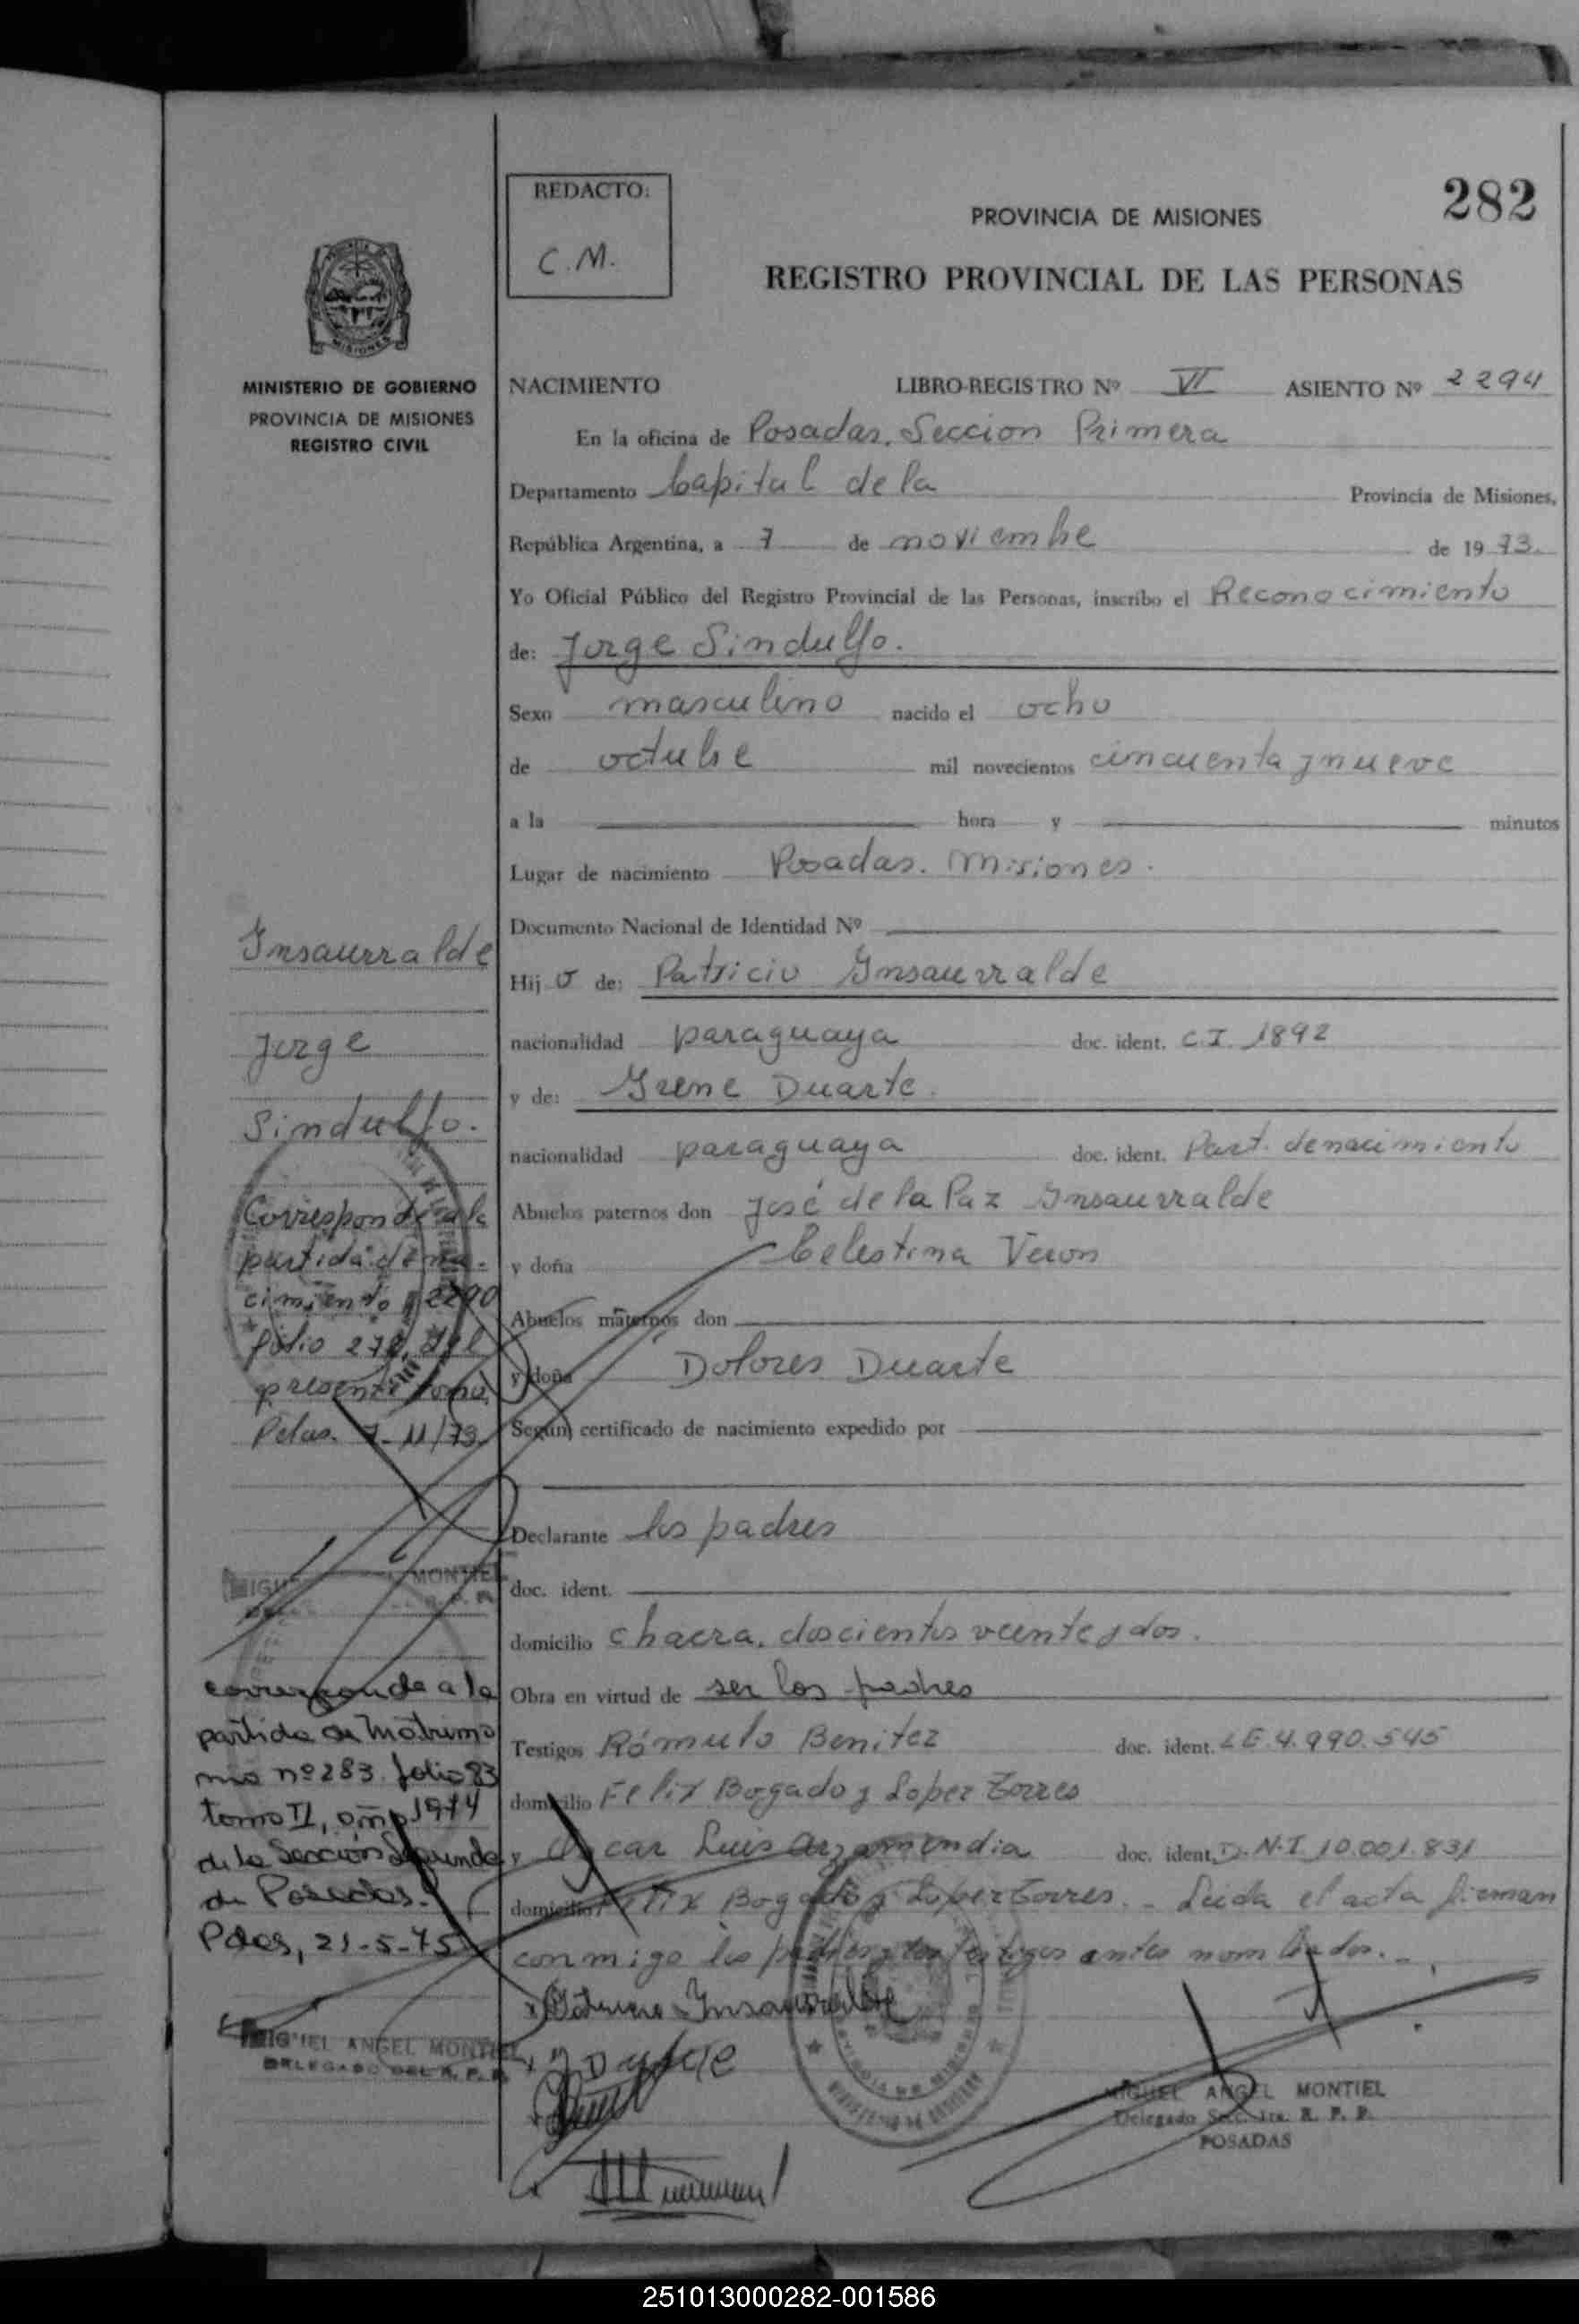 282
REDACTO:
C.M.
PROVINCIA DE MISIONES
REGISTRO PROVINCIAL DE LAS PERSONAS
MISIONES
MINISTERIO DE GOBIERNO
PROVINCIA DE MISIONES
REGISTRO CIVIL
NACIMIENTO LIBRO-REGISTRO Nº VI ASIENTO Nº 2294
En la oficina de Posadas. Seccion Primera
Departamento Capital de la Provincia de Misiones,
República Argentina, a 7 de noviembre de 1973.
Yo Oficial Público del Registro Provincial de las Personas, inscribo el Reconocimiento
de: Jorge Sindulfo.
Sexo masculino nacido el ocho
de octubre mil novecientos cincuenta y nueve
a la hora y minutos
Lugar de nacimiento Posadas. Misiones.
Documento Nacional de Identidad Nº
Hijo de: Patricio Insaurralde
nacionalidad paraguaya doc. ident. C.I. 1892
y de: Irene Duarte.
nacionalidad paraguaya doc. ident. Part. de nacimiento
Abuelos paternos don José de la Paz Insaurralde
y doña Celestina Veron
Abuelos maternos don
y doña Dolores Duarte
Según certificado de nacimiento expedido por
Declarante los padres
doc. ident.
domicilio chacra. doscientos veinte y dos.
Obra en virtud de ser los padres
Testigos Rómulo Benitez doc. ident. LE 4.990.545
domicilio Felix Bogado y Lopez Torres
y Oscar Luis Arzamendia doc. ident. D.N.I 10.001.831
domicilio Felix Bogado y Lopez Torres. - Leida el acta firman
conmigo los padres y los testigos antes nombrados. -
Insaurralde
MIGUEL ANGEL MONTIEL
Delegado Secc. 1ra. R. P. P.
POSADAS
Insaurralde
Jorge
Sindulfo.
Corresponde a la
partida de na-
cimiento 2290
folio 278, del
presente tomo
Pdas. 7-11/73.
MONTIEL
corresponde a la
partida de Matrimo
nio nº 283 folio 83
tomo II, año 1974
de la Sección Segunda
de Posadas.
Pdas, 21-5-75
MIGUEL ANGEL MONTIEL
DELEGADO DEL R. P. P.
251013000282-001586